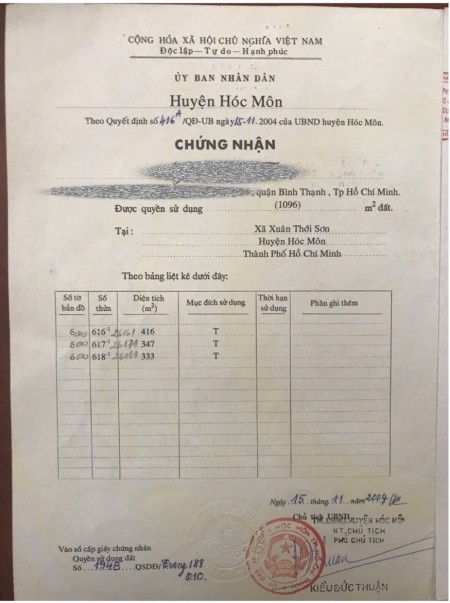 CỘNG HÒA XÃ HỘI CHỦ NGHĨA VIỆT NAM
Độc lập — Tự do — Hạnh phúc
ỦY BAN NHÂN DÂN
Huyện Hóc Môn
Theo Quyết định số 416A /QĐ-UB ngày 15-11. 2004 của UBND huyện Hóc Môn.
CHỨNG NHẬN
, quận Bình Thạnh , Tp Hồ Chí Minh.
Được quyền sử dụng (1096) m² đất.
Tại : Xã Xuân Thới Sơn
Huyện Hóc Môn
Thành Phố Hồ Chí Minh
Theo bảng liệt kê dưới đây:
Số tờ bản đồ Số thửa Diện tích (m²) Mục đích sử dụng Thời hạn sử dụng Phần ghi thêm
616-1 416 T
617-1 347 T
618-1 333 T
Ngày 15 tháng 11 năm 2004
Chủ tịch UBND
TM.UBND.HUYỆN HÓC MÔN
KT.CHỦ TỊCH
PHÓ CHỦ TỊCH
Vào sổ cấp giấy chứng nhận
Quyền sử dụng đất
Số 1948 QSDĐ/ Trang 188
Q.10.
KIỀU ĐỨC THUẬN